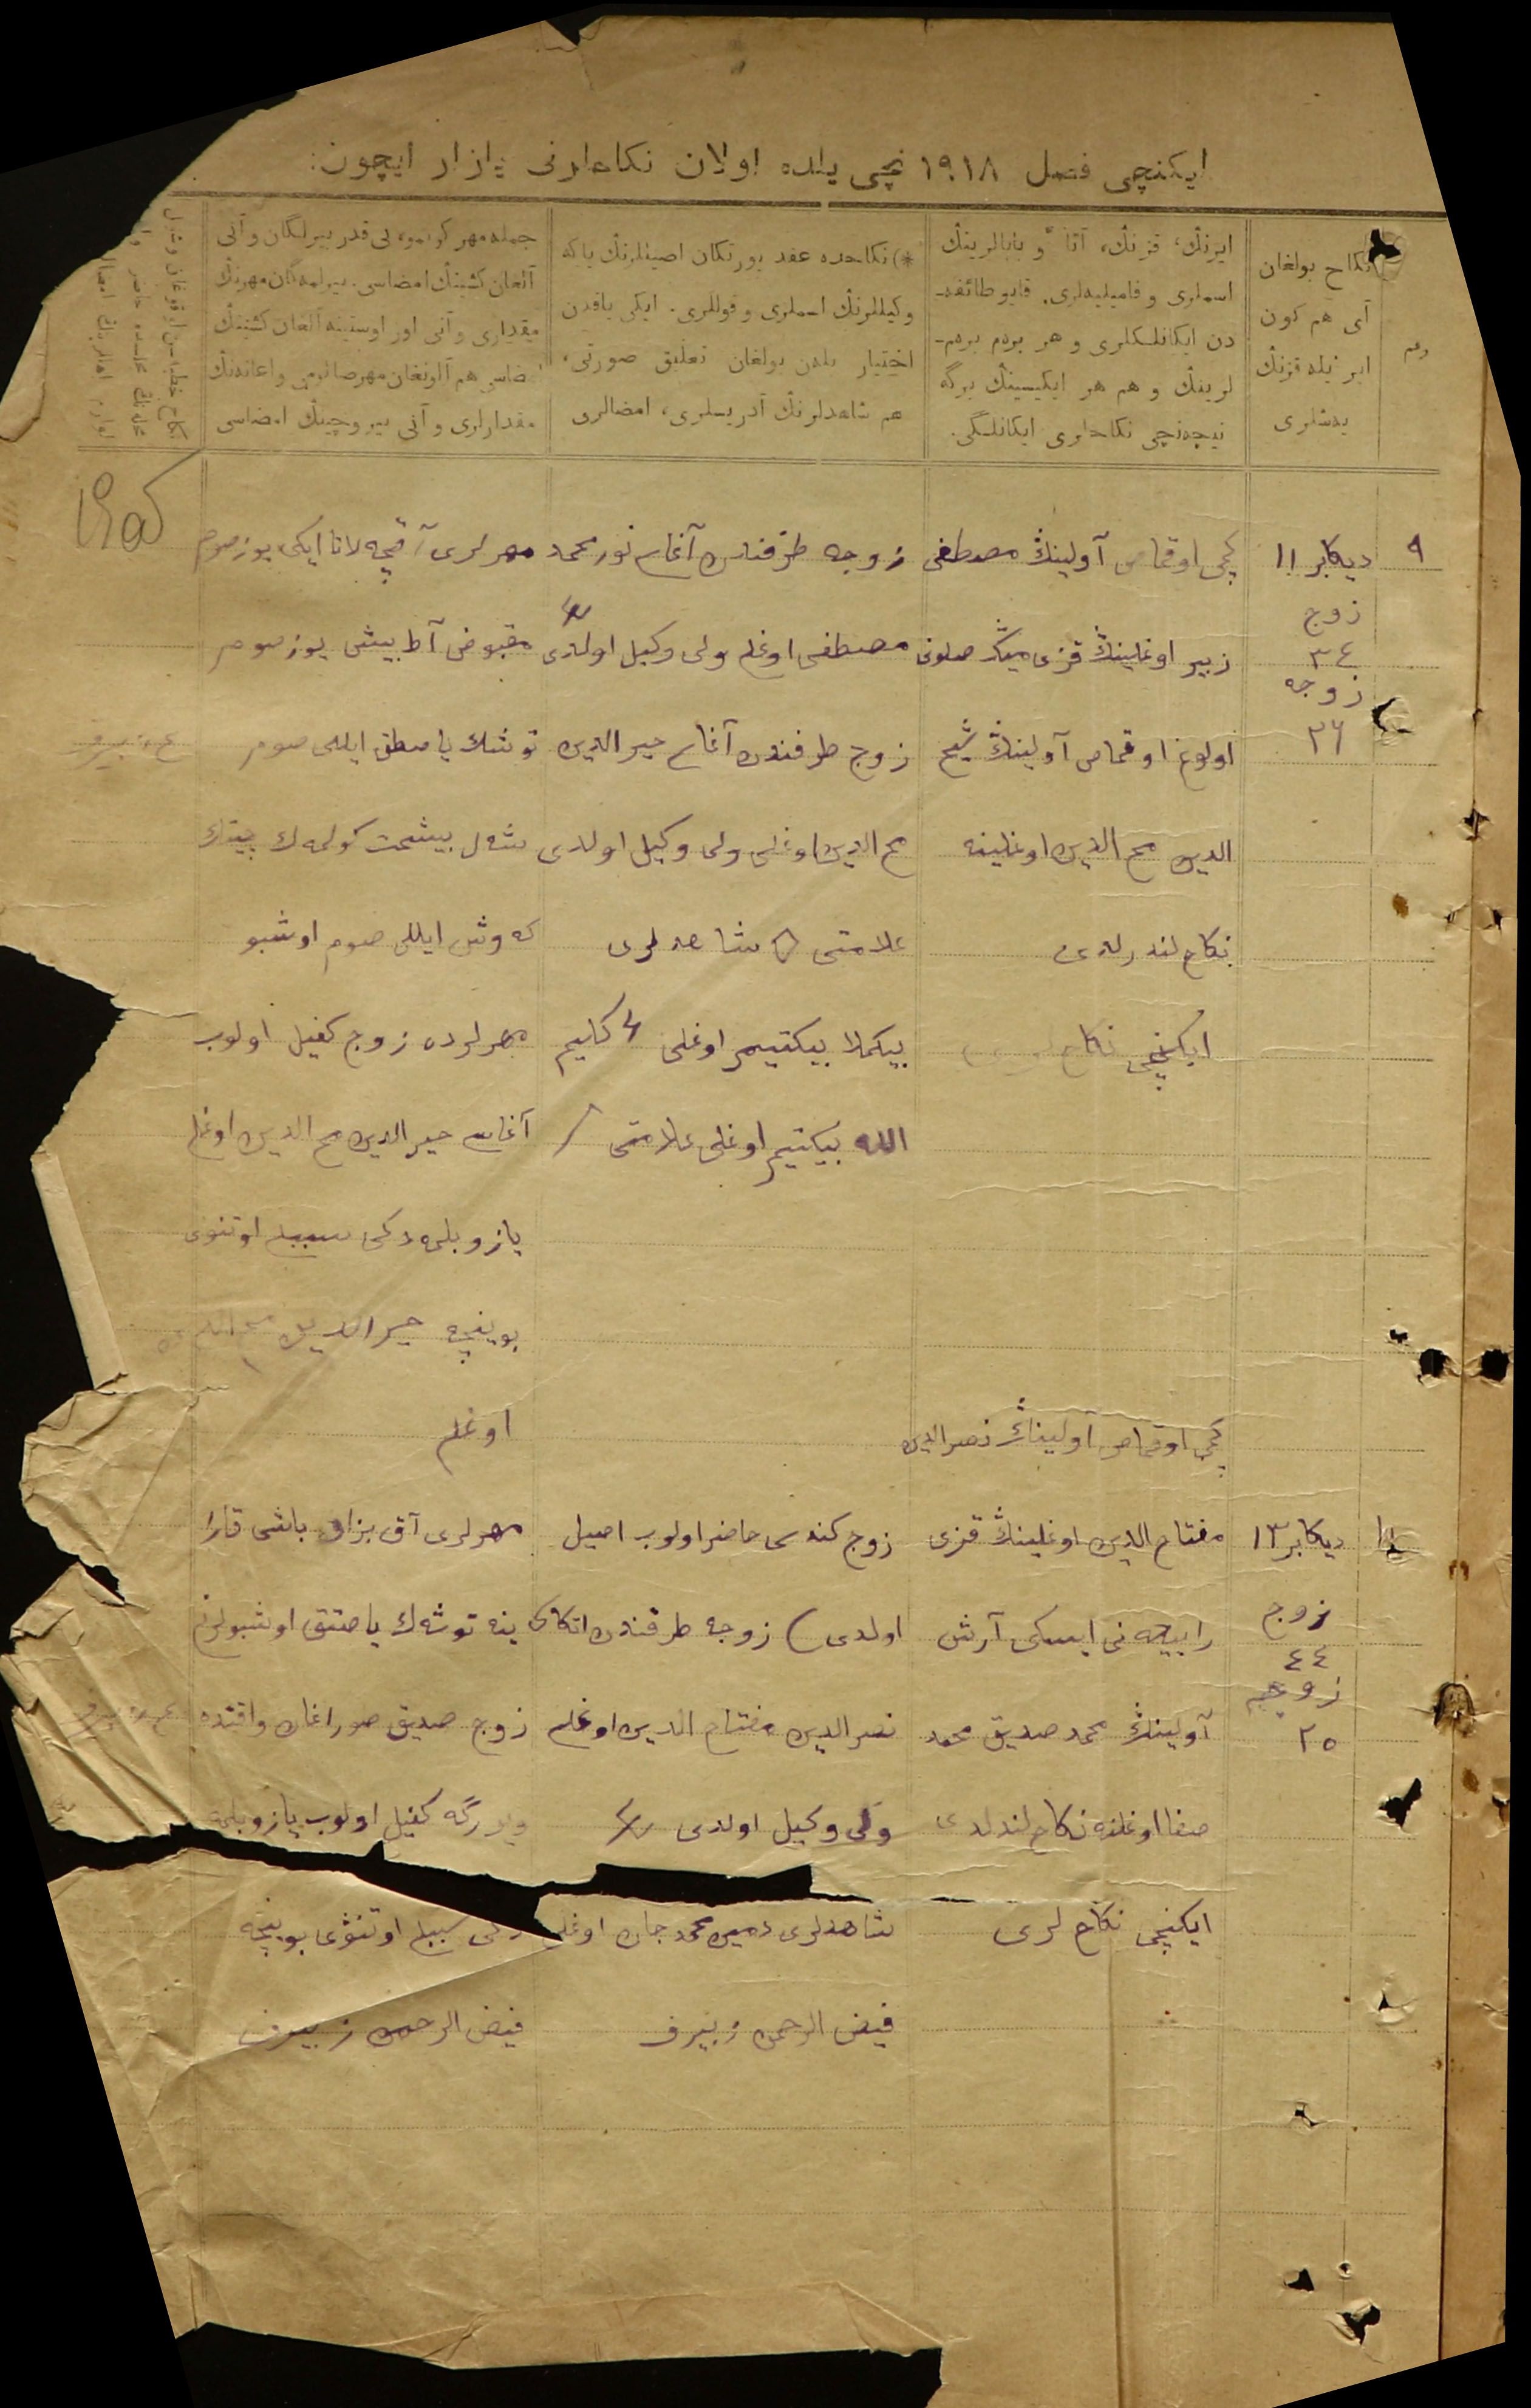 ایکنچی فصل ۱۹۱۸ نچی یلده اولان نکاحلرنی یازار ایچون:
رقم
نکاح بولغان
آی هم کون
ایر ئیله قزنڭ
یەشلری
ایرنڭ، قزنڭ، آتا و بابالرینڭ
اسملری و فامیلیەلری. قایو طائفه‌-
دن ایکانلکلری و هر برەم برەم-
لرینڭ و هم هر ایکیسینڭ برگه
نیچەنچی نکاحلری ایکانلگی.
*) نکاحده عقد یورتکان اصیللرنڭ یاکه
وکیللرنڭ اسملری و قوللری. ایکی یاقدن
اختیار بلەن بولغان تعلیق صورتی،
هم شاهدلرنڭ آدریسلری، امضالری
جمله مهر کوبمو، نی قدر بیرلگان و آنی
آلغان کشینڭ امضاسی. بیرلمەگان مهرنڭ
مقداری و آنی اوز اوستینه آلغان کشینڭ
امضاسی هم آلونغان مهر صالومی و اعانەنڭ
مقدارلری و آنی بیروچینڭ امضاسی
۹
دیکابر ۱۱
زوج
۳٤
زوجه
۳٦
کچی اوقماص آولینڭ مصطفی
زبیر اوغلینڭ قزی مینڭ صلونی
اولوغ اوقماص آولینڭ شیخ
الدین محی الدین اوغلینه
نکاح لندرلدی
ایکنچی نکاح لری
زوجه طرفندن آغاسی نورمحمد
مصطفی اوغلی ولی وکیل اولدی
زوج طرفندن آغاسی خیرالدین
محی الدین اوغلی ولی وکیل اولدی
علامتی شاهدلری
بیکملا بیکتیمر اوغلی کلیم
الله بیکتیمر اوغلی علامتی
مهرلری آقچه لاتا ایکی یوز صوم
مقبوض آط بیش یوز صوم
توشك یاصطق ایللی صوم
شەل بیشمت کولمەك چیتك
کەوش ایللی صوم اوشبو
مهرلرده زوج کفیل اولوب
آغاسی خیرالدین محی الدین اوغلی
یازو بلمەدکی سببلی اوتنوی
بوینچه خیرالدین محی الدین
اوغلی
دیکابر ۱۳
زوج
٤٤
زوجه
۲٥
کچی اوقماص آولینڭ نصرالدین
مفتاح الدین اوغلینڭ قزی
رابیعه نی ایسکی آرش
آولینڭ محمد صدیق محمد
صفا اوغلنه نکاح لندلدی
ایکنچی نکاح لری
زوج کندسی حاضر اولوب اصیل
اولدی) زوجه طرفندن اتکاسی
نصرالدین مفتاح الدین اوغلی
ولی وکیل اولدی
شاهدلری محمد جان اوغلی
فیض الرحمن زبیرف
مهرلری آق بزاو باشی قارا
ینه توشەك یاصتق اوشبولرنی
زوج صدیق صوراغان واقتده
ویررگه کفیل اولوب یازو بلمه
دکی سببلی اوتنوی بوینچه
فیض الرحمن زبیرف